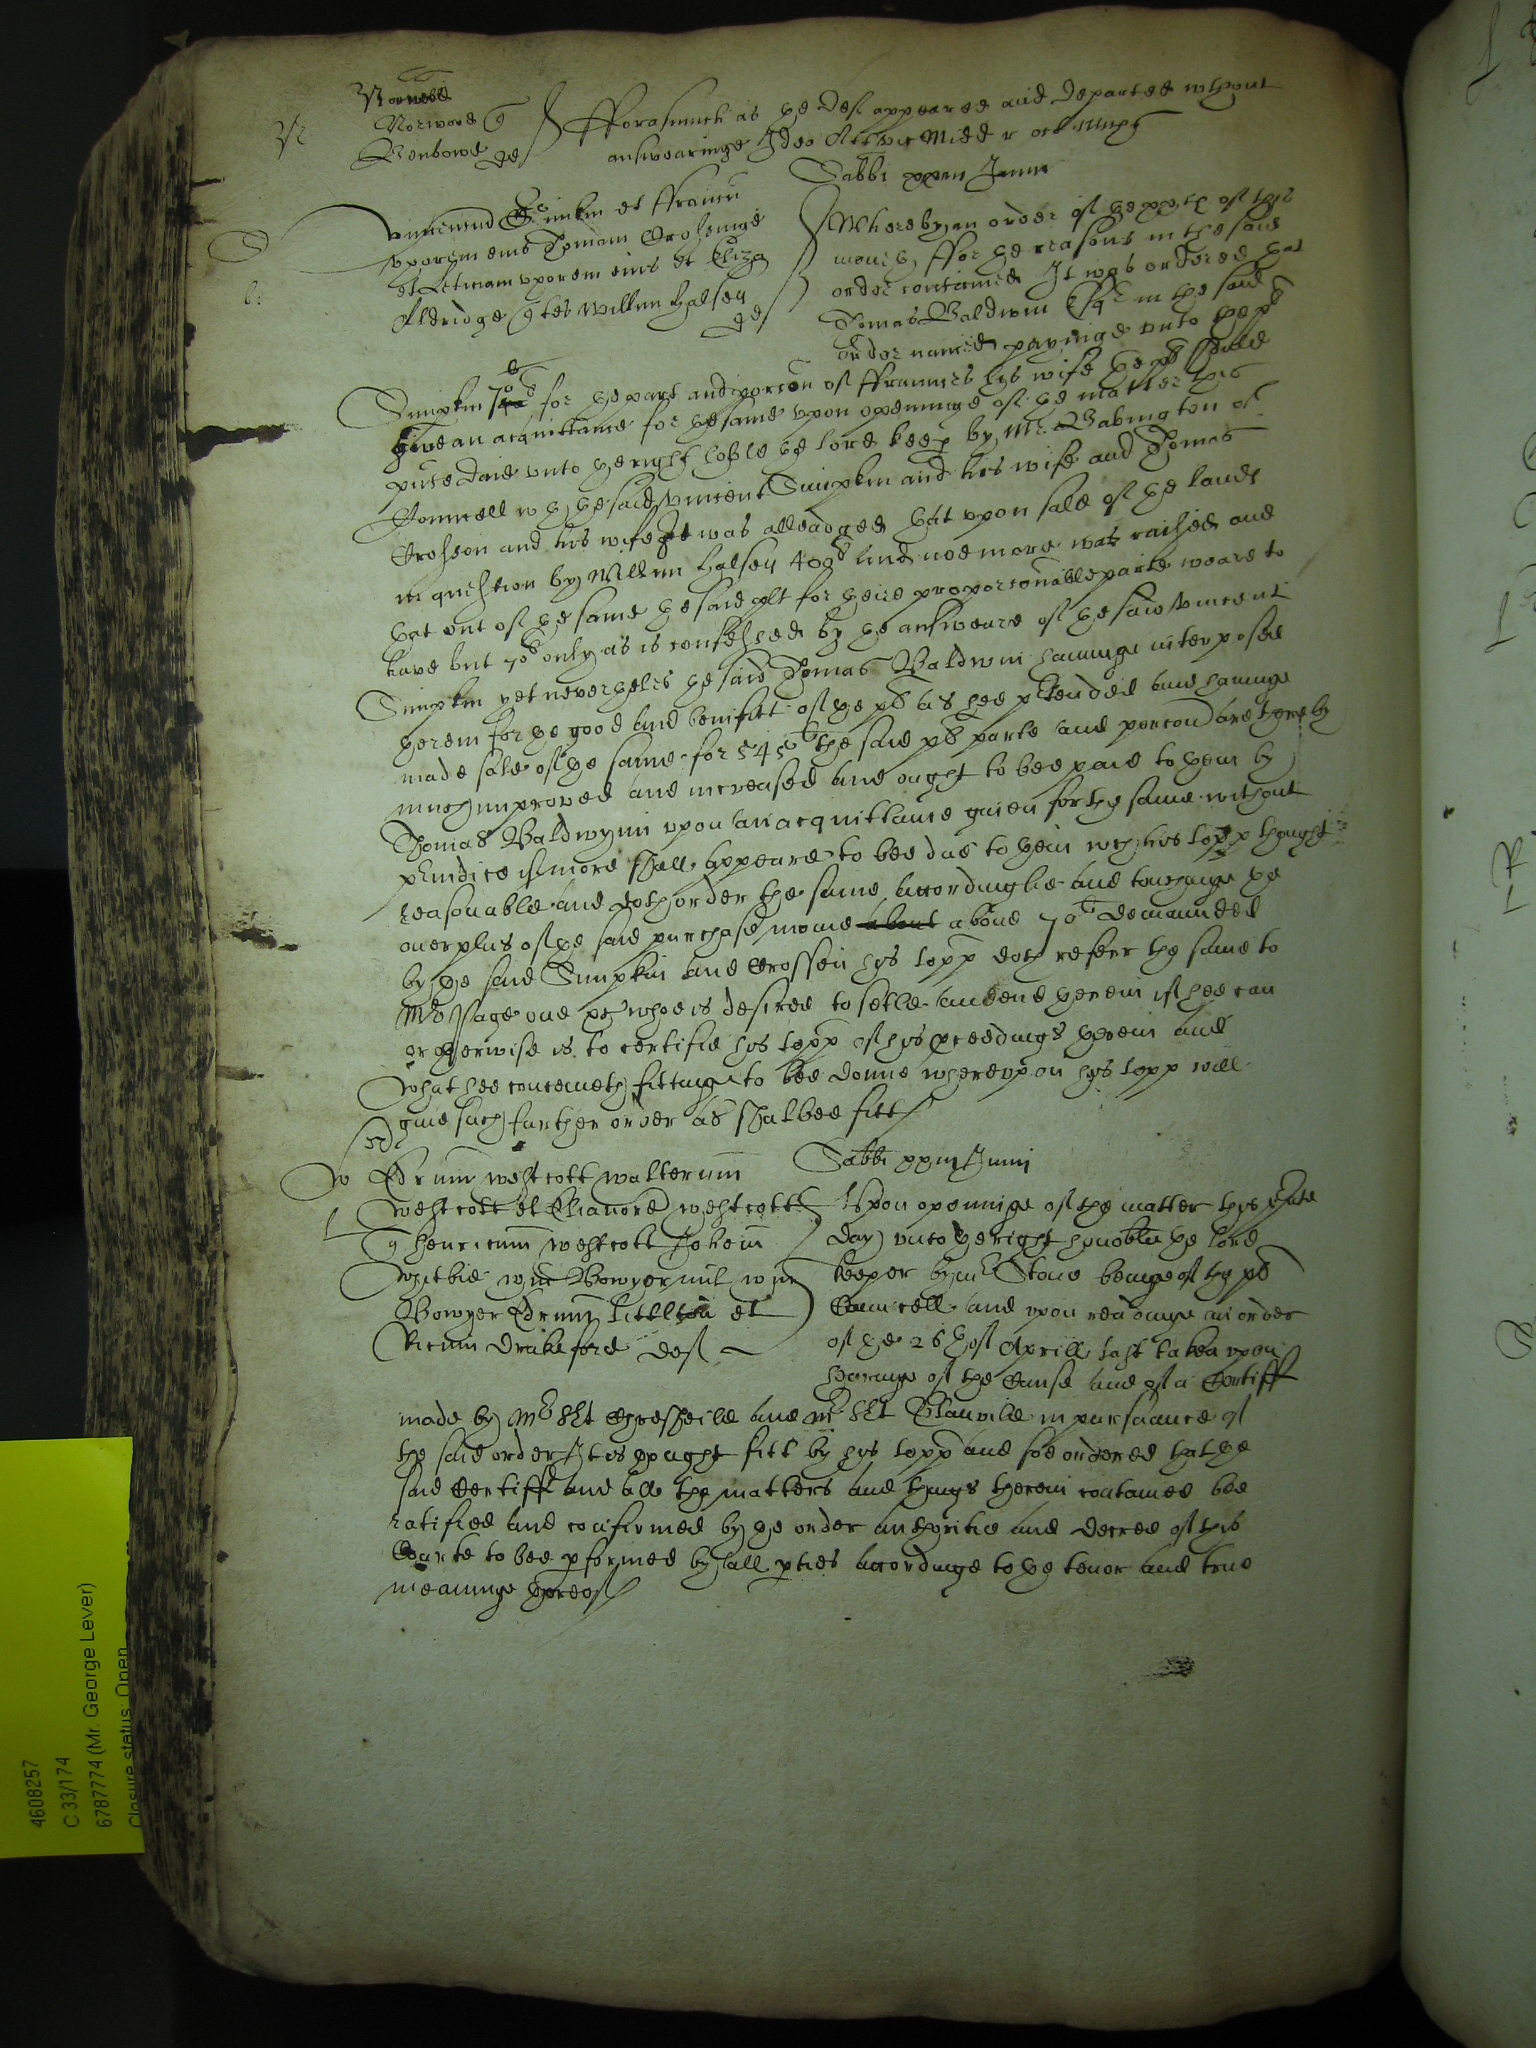 Norwood q
Benbowe def
fforasmuch as the def appeared and departed without
answearinge Ideo Midd
Sabbi Junii
Simkin et
uxorem eius Thomam Croshenige
et uxorem eius et Eliza
Aldridge q tes Willm Halsey
def
Whereby an order of the of this
moneth ffor the reasons in the said
order conteined It was ordered that
Thomas Baldwin Esqr in the said
order named payinge unto the pl
Simpkin 70l for the part and porcon of ffraunces his wife the pl should
give an acquittance for the same upon openinge of the matter this
pnte daie unto the right hoble the lord keep by Mr Babington of
Councell wth the said Vincent Simpkin and his wife and Thomas
Crosson and his wife It was alleadged that upon sale of the lands
in question by Willm Halsey 400l and noe more was raised and
that out of the same the said plt for theire proporconable parte weare to
have but 70l only as is confessed by the answeare of the said Vincent
Simpkin yet nevertheles the said Thomas Baldwin haveinge interposed
therein for the good and benifitt of the pl as hee ptended and haveinge
made sale of the same for 545l the said pl parte and porcon are thereby
much improved and increased and ought to bee paid to them by
Thomas Baldwynn upon an acquittance given for the same without
piudice if more shall appeare to bee due to them wch his lopp thought
reasonable and doth order the same accordinglie and touchinge the
overplus of the said purchase monie about above 70l demaunded
by the said Simpkin and Crossen his lopp doth referr the same to
Mr Page one whoe is desired to setle an end therein if hee can
or otherwise is to certifie his lopp of his pceedings therein and
what hee conceiveth fittinge to bee donne whereupon his lopp will
give such further order as shalbee fitt
Sabbi Junii
Edrum westcott walterum
westcott et Elianore westcott
q Henricum westcott Johem
whitbie wm Bowyer mil wm
Bowyer Edrum Littleton et
Ricum Drakeford def
Upon openinge of the matter this pnte
day unto the right honoble the lord
keeper by mr Stone beinge of the pl
Councell and upon readinge an order
of the 26th of Aprill last taken upon
hearinge of the Cause and of a Certiff
made by Mr Sert and Mr Sert Glanvile in pursuance of
the said order It is thought fitt by his lopp and soe ordered that the
said Certiff and all the matters and things therein contained bee
ratified and confirmed by the order authoritie and decree of this
Courte to bee pformed by all pties accordinge to the tenor and true
meaninge thereof
4608257
C 33/174
6787774 (Mr. George Lever)
Closure status: Open